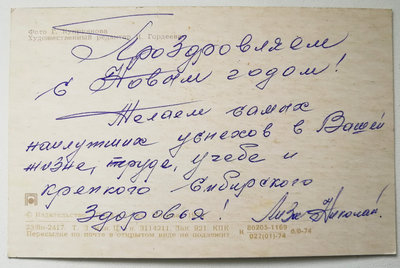 Фото Г. Куприянова
Художественный редактор П. Гордеев
Поздровляем
с Новым годом!
Желаем самых
наилутших успехов в Вашей
жизне, труде, учебе и
крепкого Сибирского
Здоровья!
Лиза Николай.
© Издательство
Зак 921 КПК
80203-1169
027(01)-74
0/0-74
Пересылке по почте в открытом виде не подлежит